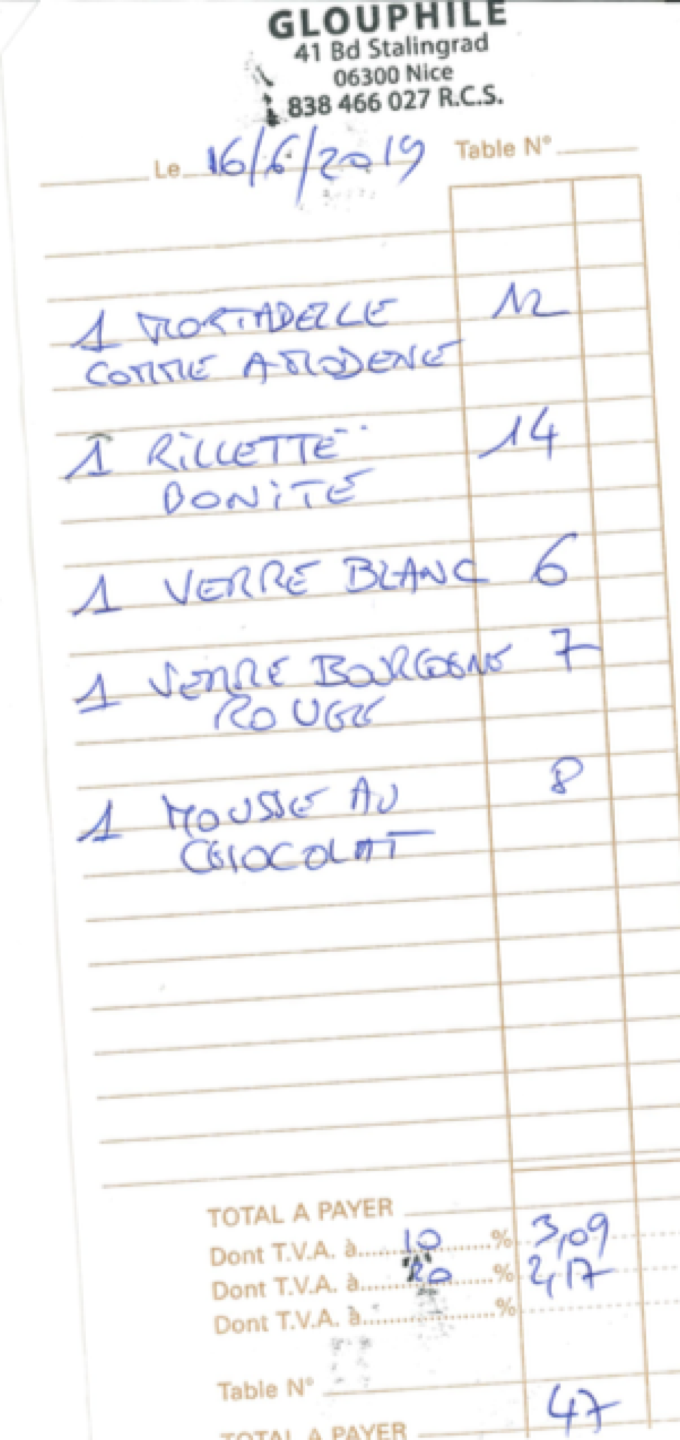 GLOUPHILE
41 Bd Stalingrad
06300 Nice
838 466 027 R.C.S.
Le 16/6/2019 Table N°
1 MORTADELLE 12
COMME A MODENE
1 RILLETTE 14
BONITE
1 VERRE BLANC 6
1 VERRE BOURGOGNE 7
ROUGE
1 MOUSSE AU 8
CHOCOLAT
TOTAL A PAYER
Dont T.V.A. à 10 % 3,09
Dont T.V.A. à 20 % 2,17
Dont T.V.A. à %
Table N°
TOTAL A PAYER 47